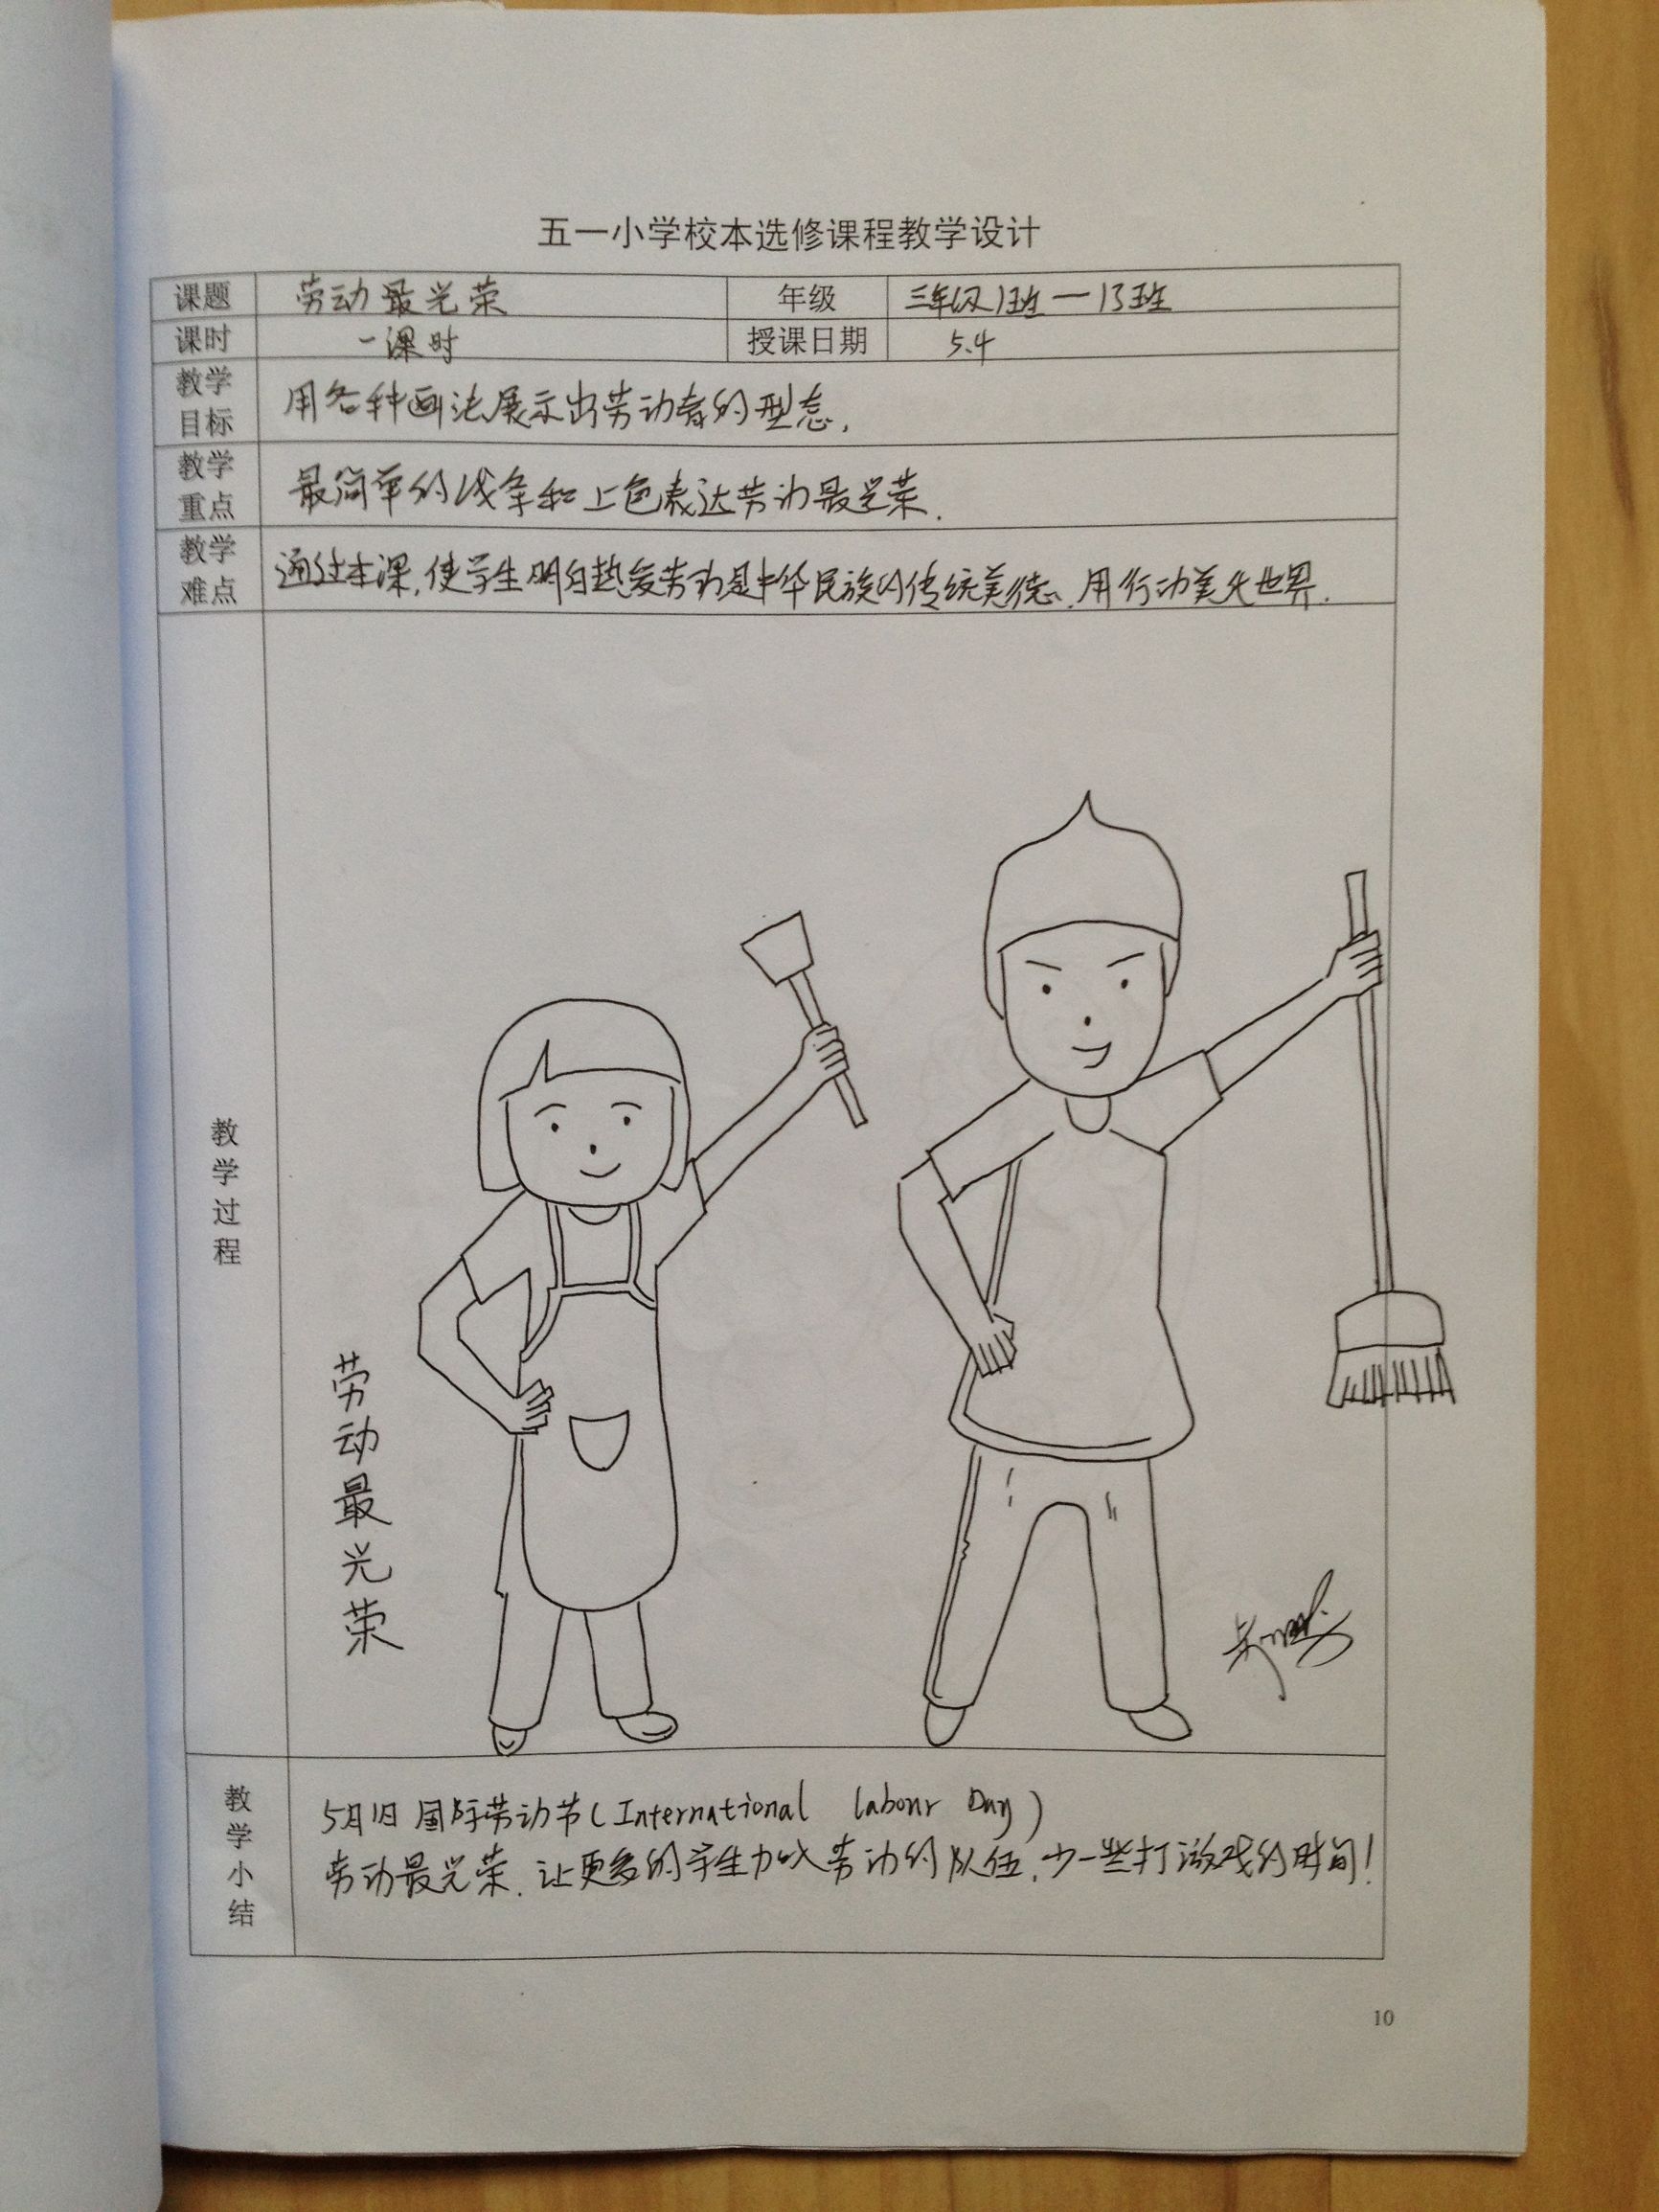 五一小学校本选修课程教学设计
课题 劳动最光荣 年级 三年级1班一13班
课时 一课时 授课日期 5.4
教学目标 用各种画法展示出劳动者的型态.
教学重点 最简单的线条和上色表达劳动最光荣.
教学难点 通过本课,使学生明白热爱劳动是中华民族的传统美德、用行动美化世界.
教学过程
劳动最光荣
教学小结
5月1日 国际劳动节(International labour Day)
劳动最光荣.让更多的学生加入劳动的队伍.少一些打游戏的时间!
10